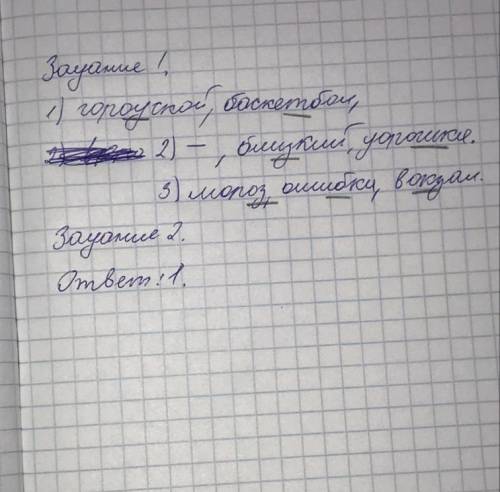 Задание 1.
1) городской, баскетбол,
2) –, близкий, дорожка.
3) мороз, ошибки, вокзал.
Задание 2.
Ответ: 1.